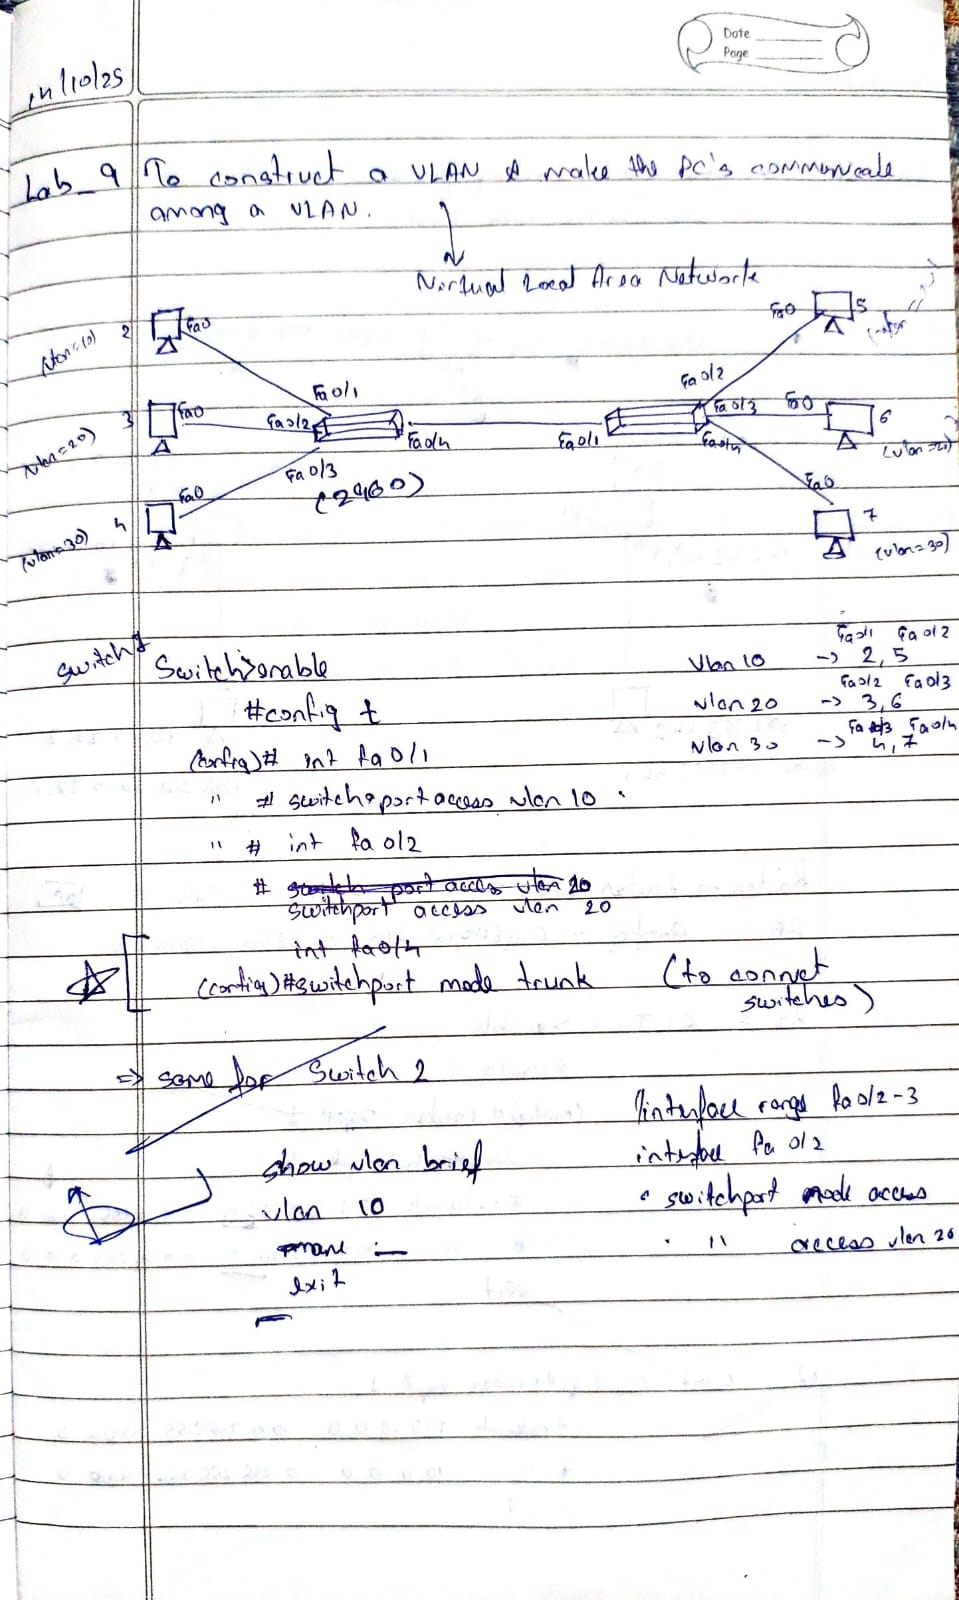 Date
Page
14/10/25
Lab_9 To construct a VLAN & make the PC's communicate
among a VLAN.
Virtual Local Area Network
2 Fa0
(Vlan=10)
Fa0 5
Fa0/1
Fa0/2
3 Fa0
(Vlan=20)
Fa0/2
Fa0/4
Fa0/1
Fa0/3 Fa0 6
Fa0/4
(vlan=20)
Fa0/3
(2960)
4 Fa0
(vlan=30)
Fa0
7
(vlan=30)
Switch1
Switch>enable
#config t
(config)# int fa0/1
" # switchport access vlan 10
" # int fa 0/2
# switch port access vlan 20
switchport access vlan 20
int fa0/4
(config)#switchport mode trunk (to connect
switches)
Fa0/1 Fa0/2
Vlan 10 -> 2, 5
Fa0/2 Fa0/3
vlan 20 -> 3, 6
Fa 0/3 Fa0/4
vlan 30 -> 4, 7
=> same for Switch 2
show vlan brief
vlan 10
name —
exit
interface range fa0/2-3
interface fa 0/2
switchport mode access
" access vlan 20